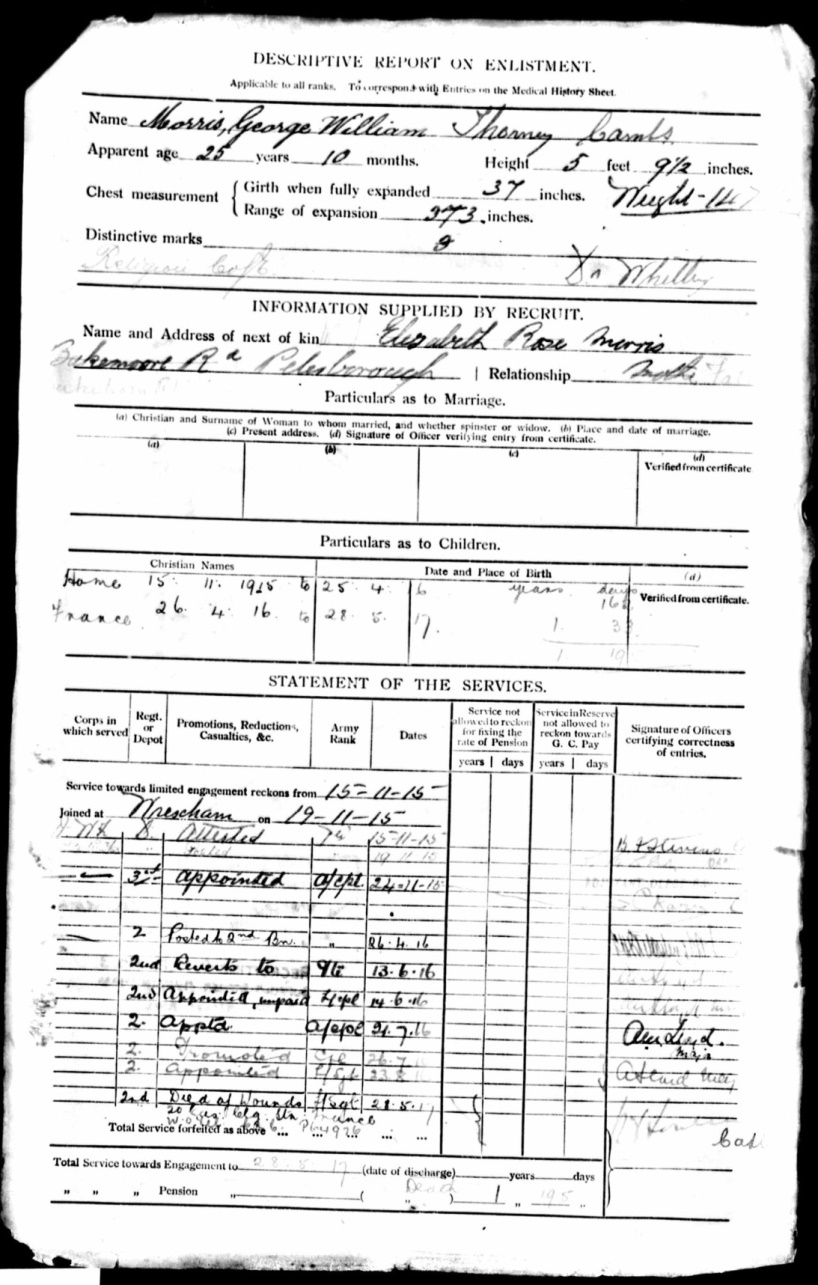 DESCRIPTIVE REPORT ON ENLISTMENT.
Applicable to all ranks. To correspond with Entries on the Medical History Sheet.
Name Morris, George William Thorney Cambs
Apparent age 25 years 10 months. Height 5 feet 9½ inches.
Chest measurement { Girth when fully expanded 37 inches. Weight - 147
Range of expansion inches.
Distinctive marks
Religion CofE Whittsy
INFORMATION SUPPLIED BY RECRUIT.
Name and Address of next of kin Elizabeth Rose Morris
Rd Peterborough | Relationship Mother
Particulars as to Marriage.
(a) Christian and Surname of Woman to whom married, and whether spinster or widow. (b) Place and date of marriage.
(c) Present address. (d) Signature of Officer verifying entry from certificate.
(a) (b) (c) (d)
Verified from certificate
Particulars as to Children.
Christian Names Date and Place of Birth (d)
Verified from certificate.
Home 15. 11. 1915 to 25 4 16 years days
France 26. 4 16. to 28 5 17. 1
STATEMENT OF THE SERVICES.
Corps in which served Regt. or Depot Promotions, Reductions, Casualties, &c. Army Rank Dates Service not allowed to reckon for fixing the rate of Pension Service in Reserve not allowed to reckon towards G. C. Pay Signature of Officers certifying correctness of entries.
years | days years | days
Service towards limited engagement reckons from 15-11-15
Joined at Wrexham on 19-11-15
Attested Pte 15-11-15 Stevens
Posted 19 11 15
3rd Appointed A/Cpl. 24-11-15
2 Posted to 2nd Bn. " 26.4.16
2nd Reverts to Pte 13.6.16
2nd Appointed, unpaid L/Cpl 14.6.16
2. Apptd A/Cpl 21.7.16 Major
2. Promoted Cpl 26.7
2. Appointed L/Sgt 23.8
2nd Died of Wounds L/Sgt 28.5.17
20 Cas. Clg. Stn. France
Total Service forfeited as above ... ... ... ...
Total Service towards Engagement to 28.5.17 (date of discharge) years days
" " " Pension " ( Death " ) 1 " 195 "